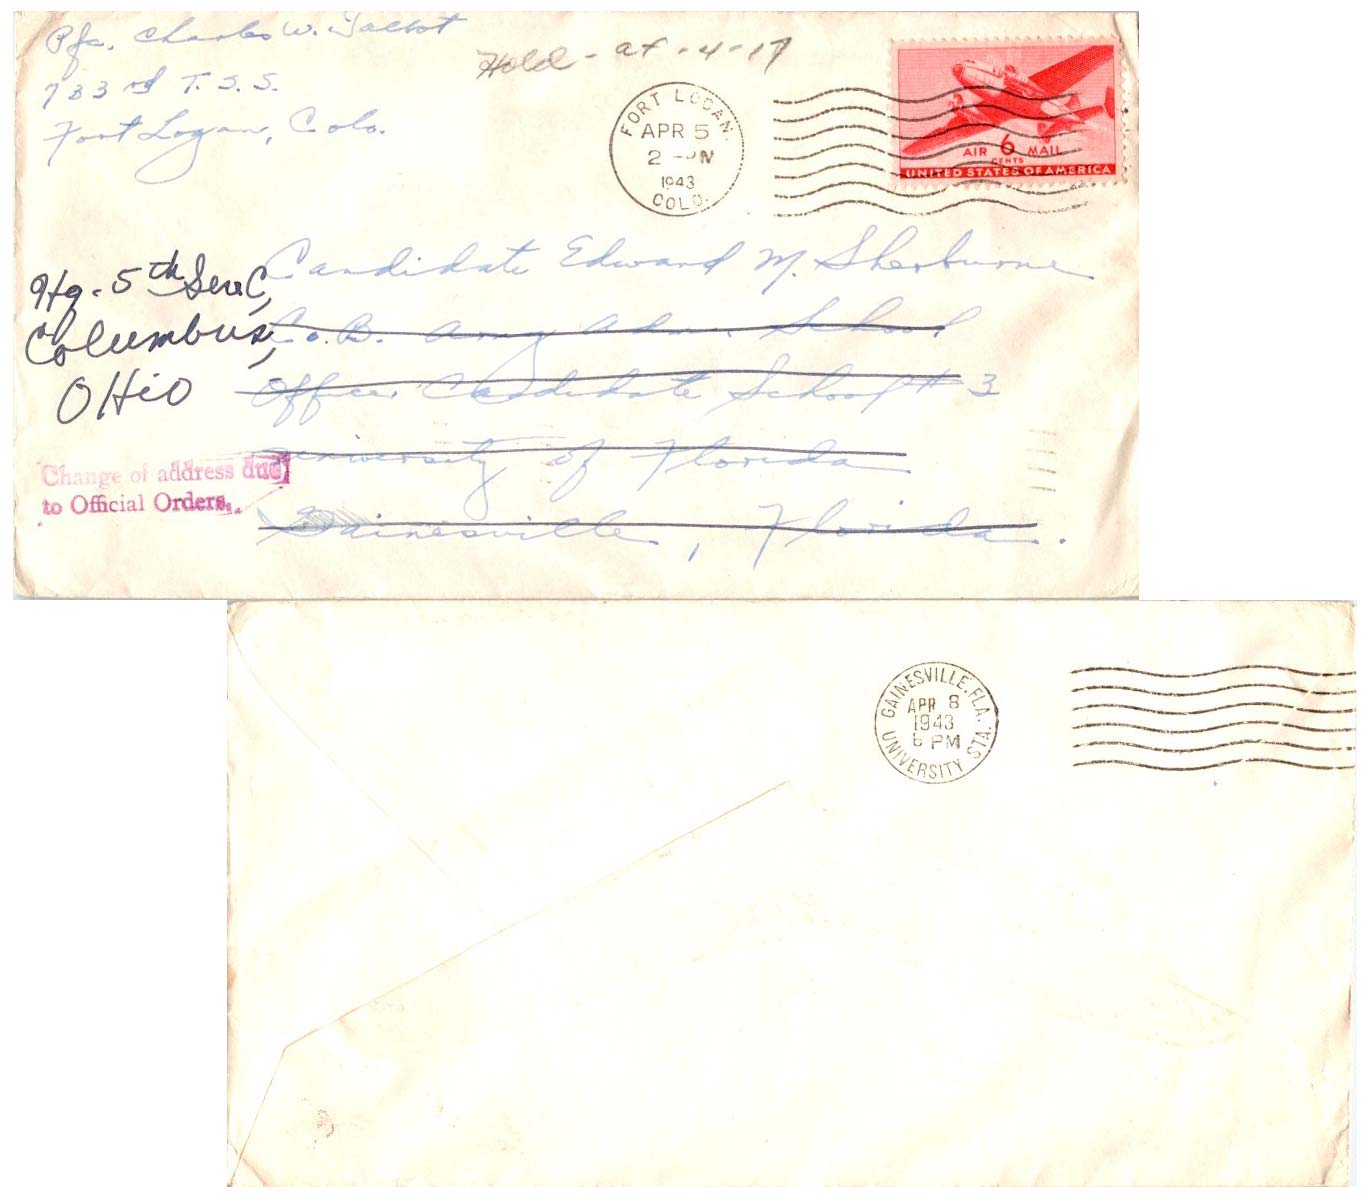 Pfc. Charles W. Talbot
783rd T. S. S.
Fort Logan, Colo.
Hold - at - 4-17
FORT LOGAN,
APR 5
2 -PM
1943
COLO.
AIR 6 MAIL
CENTS
UNITED STATES OF AMERICA
Candidate Edward M. Sherburne
Co. B. Army Adm. School
Officer Candidate School # 3
University of Florida
Gainesville, Florida.
Hq. 5th Serv C,
Columbus,
OHio
Change of address due
to Official Orders.
GAINESVILLE, FLA.
APR 8
1943
6 PM
UNIVERSITY STA.